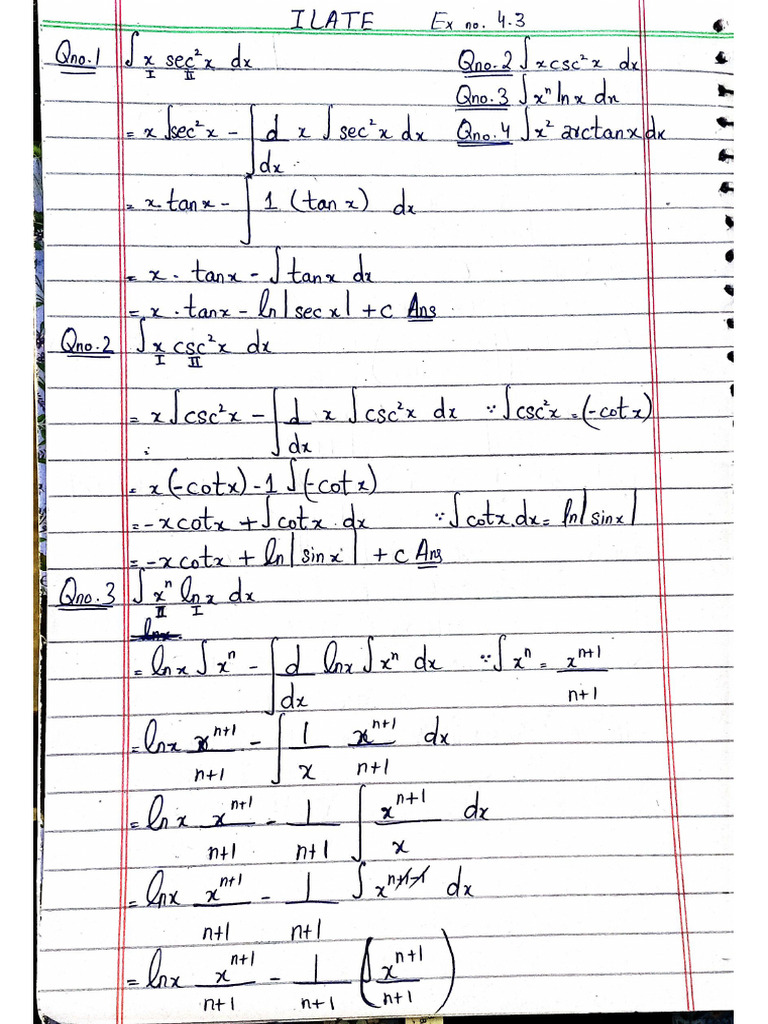 ILATE Ex no. 4.3
Qno.1 ∫ x sec²x dx
I II
Qno.2 ∫ x csc²x dx
Qno.3 ∫ xⁿ ln x dx
= x ∫sec²x - ∫ d/dx x ∫ sec²x dx
Qno.4 ∫ x² arctanx dx
= x tanx - ∫ 1 (tan x) dx
= x · tanx - ∫ tanx dx
= x · tanx - ln|sec x| + c Ans
Qno.2 ∫ x csc²x dx
I II
= x ∫ csc²x - ∫ d/dx x ∫ csc²x dx ∵ ∫ csc²x = (-cotx)
= x(-cotx) - 1 ∫(-cotx)
= -xcotx + ∫ cotx dx ∵ ∫ cotx.dx = ln|sinx|
= -xcotx + ln|sinx| + c Ans
Qno.3 ∫ xⁿ ln x dx
II I
lnx
= lnx ∫ xⁿ - ∫ d/dx lnx ∫ xⁿ dx ∵ ∫ xⁿ = xⁿ⁺¹/n+1
= lnx xⁿ⁺¹/n+1 - ∫ 1/x xⁿ⁺¹/n+1 dx
= ln x xⁿ⁺¹/n+1 - 1/n+1 ∫ xⁿ⁺¹/x dx
= lnx xⁿ⁺¹/n+1 - 1/n+1 ∫ xⁿ⁺¹⁻¹ dx
= lnx xⁿ⁺¹/n+1 - 1/n+1 (∫ xⁿ⁺¹/n+1)